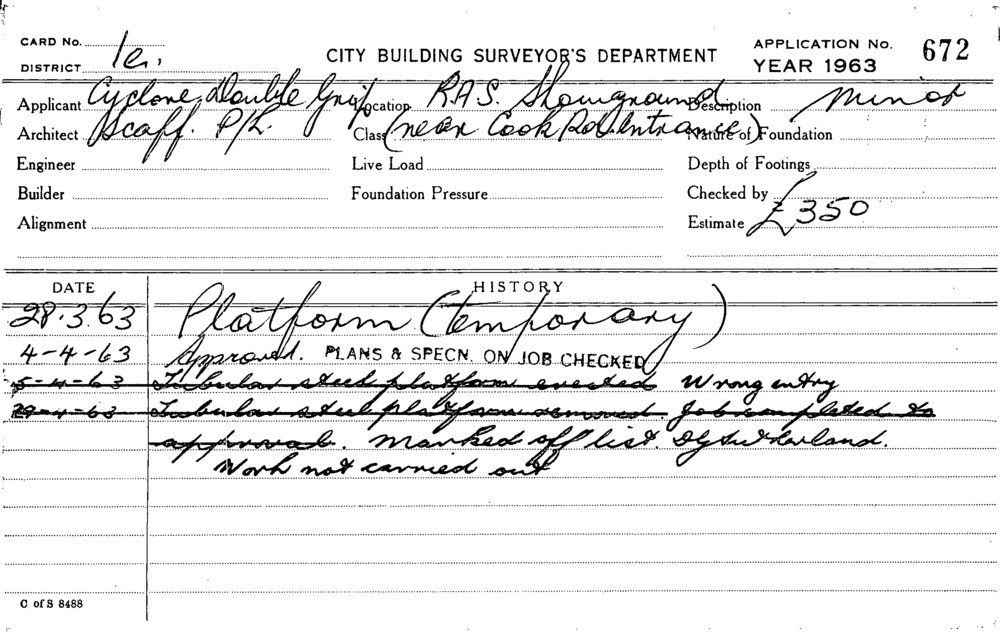 CARD No. CITY BUILDING SURVEYOR'S DEPARTMENT APPLICATION No. 672
DISTRICT 1e. YEAR 1963
Applicant Cyclone Double Grip Location R.A.S. Showground Description Minor
Architect Scaff. P/L. Class (near Cook Rd. entrance) Nature of Foundation
Engineer Live Load Depth of Footings
Builder Foundation Pressure Checked by
Alignment Estimate £350
DATE HISTORY
28.3.63 Platform (temporary)
4-4-63 Approved. PLANS & SPECN. ON JOB CHECKED
5-4-63 Tubular steel platform erected Wrong entry
29-4-63 Tubular steel platform removed. Job completed to
approval. Marked off list. Sutherland.
Work not carried out
C of S 8488